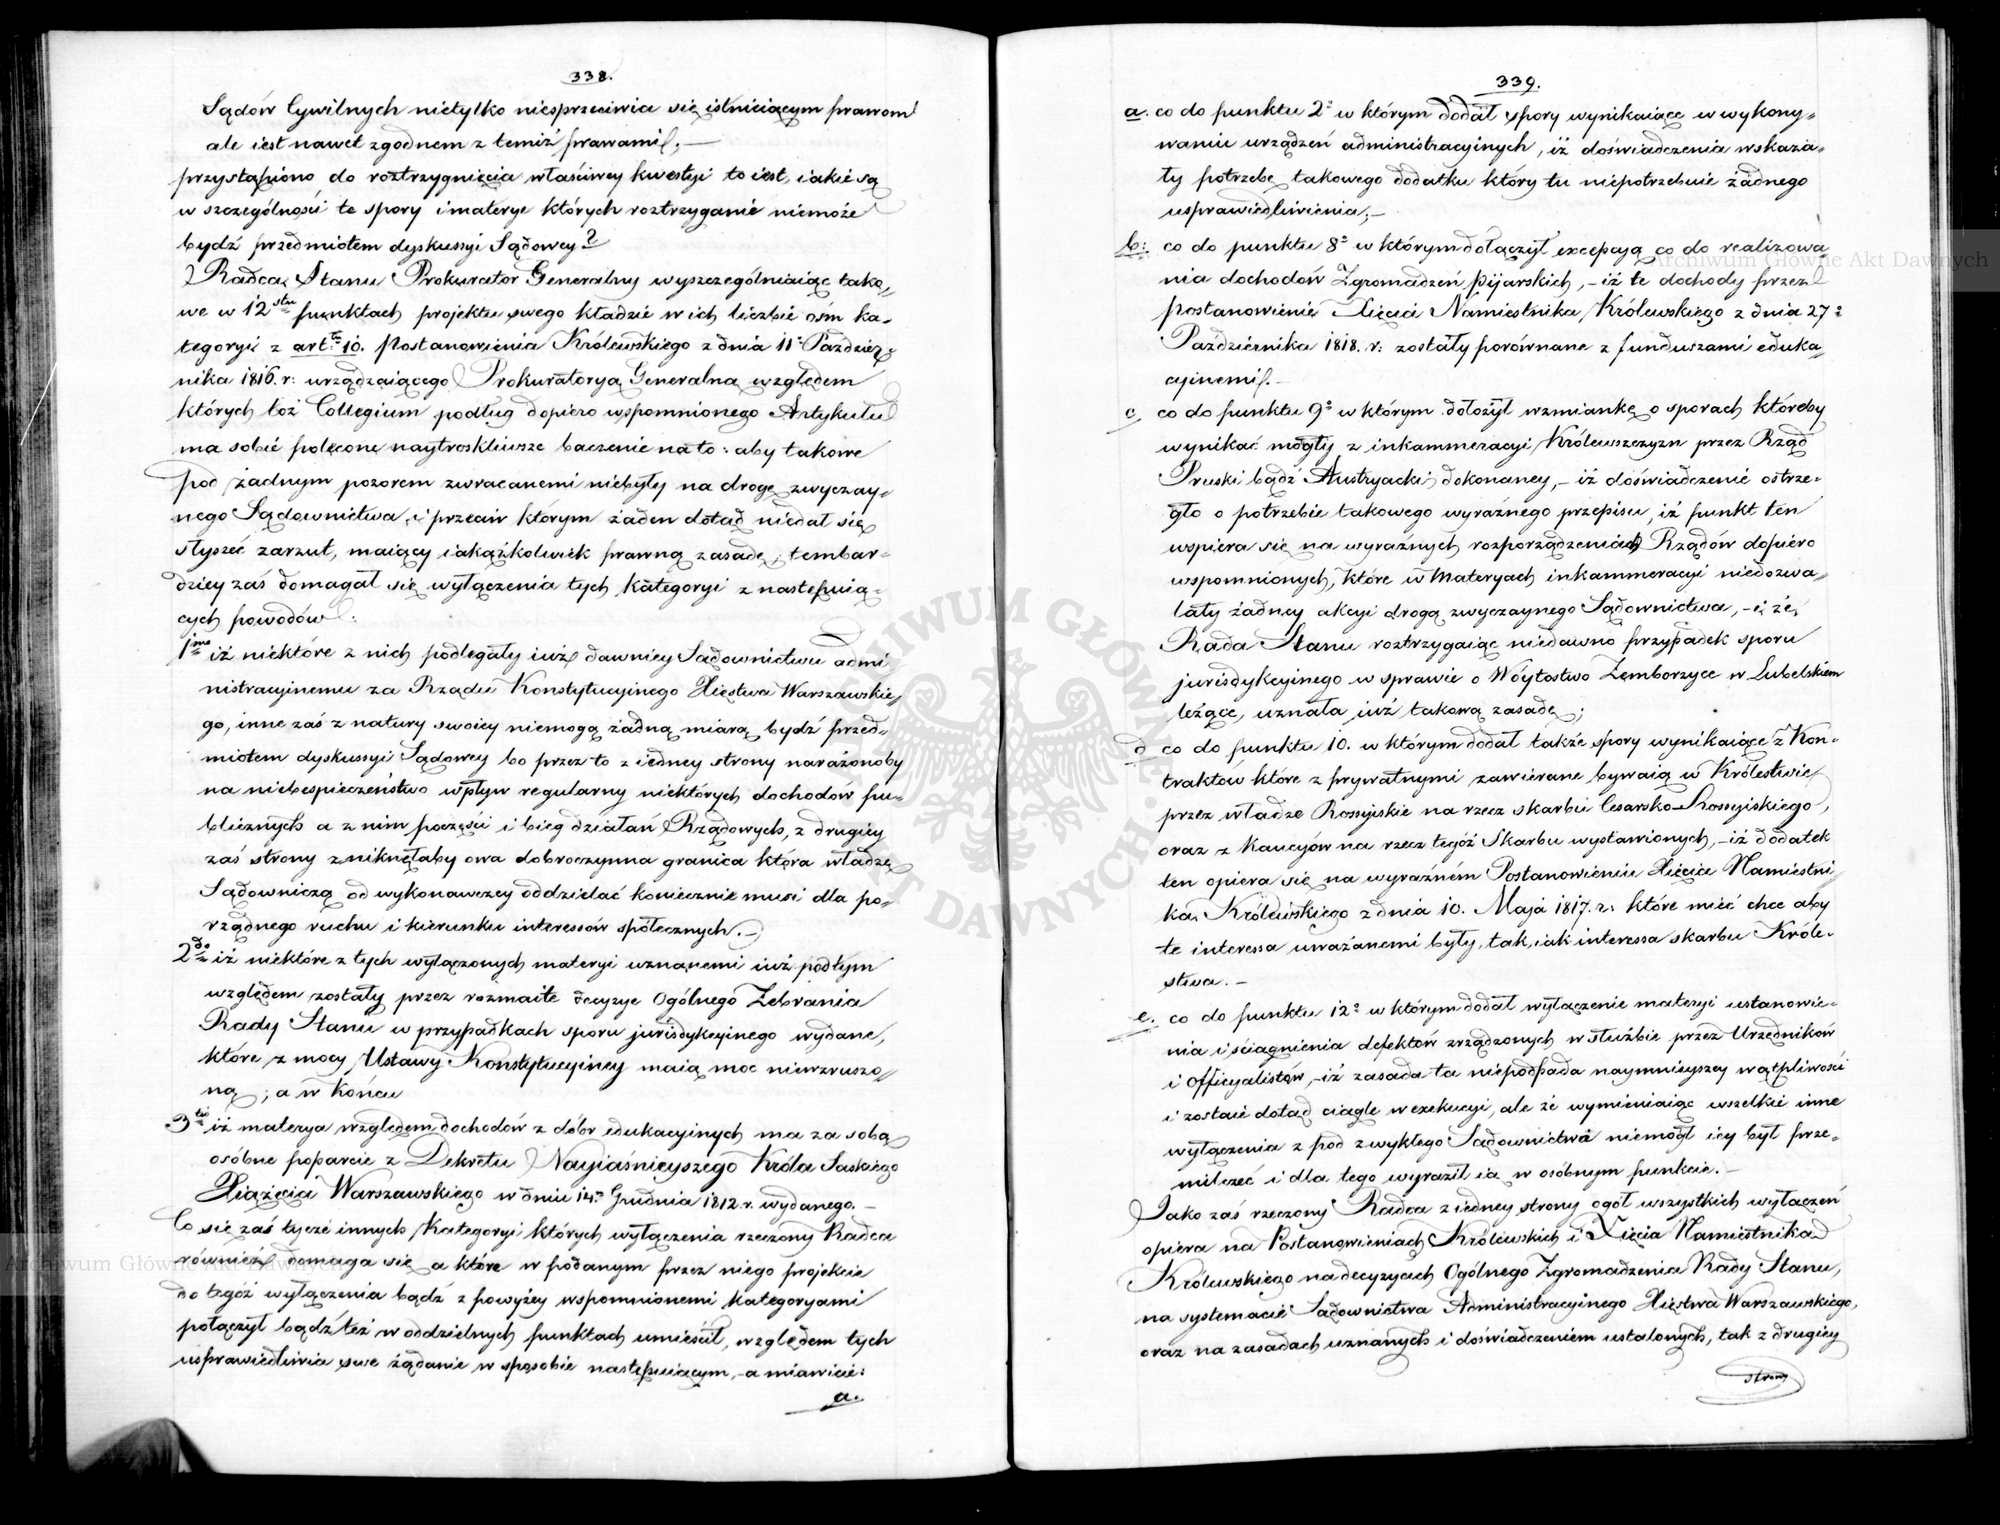 338.
Sądów Cywilnych nietylko niesprzeciwia się istnieiącym prawom
ale iest nawet zgodnem z temiż prawami; —
przystąpiono do roztrzygnięcia właściwey kwestyi to iest, iakie są
w szczególności te spory i materye których roztrzyganie niemoże
bydź przedmiotem dyskussyi Sądowey?
Radca Stanu Prokurator Generalny wyszczególniaiąc tako„
we w 12stu punktach projektu swego kładzie w ich liczbie ośm ka„
tegoryi z artt: 10. Postanowienia Królewskiego z dnia 11o Paździer„
nika 1816. r: urządzaiącego Prokuratoryą Generalną względem
których toż Collegium podług dopiero wspomnionego Artykułu
ma sobie polecone naytroskliwsze baczenie na to: aby takowe
pod żadnym pozorem zwracanemi niebyły na drogę zwyczay„
nego Sądownictwa, i przeciw którym żaden dotąd niedał się
słyszeć zarzut, maiący iakążkolwiek prawną zasadę; tembar„
dziey zaś domagał się wyłączenia tych kategoryi z następuią„
cych powodów:
1mo iż niektóre z nich podlegały iuż dawniey Sądownictwu admi
nistracyinemu za Rządu Konstytucyinego Xięstwa Warszawskie„
go, inne zaś z natury swoiey niemogą żadną miarą bydź przed„
miotem dyskussyi Sądowey bo przez to z iedney strony narażonoby
na niebespieczeństwo wpływ regularny niektórych dochodów pu„
blicznych a z nim poczęści i bieg działań Rządowych, z drugiey
zaś strony zniknęłaby owa dobroczynna granica która władzę
Sądowniczą od wykonawczey oddzielać koniecznie musi dla po„
rządnego ruchu i kierunku interessów społecznych. —
2do iż niektóre z tych wyłączonych materyi uznanemi iuż pod tym
względem zostały przez rozmaite decyzye Ogólnego Zebrania
Rady Stanu w przypadkach sporu jurisdykcyinego wydane,
które z mocy Ustawy Konstytucyiney maią moc niewzruszo„
ną; a w końcu
3tio iż materya względem dochodów z dóbr edukacyinych ma za sobą
osóbne poparcie z Dekretu Nayiaśnieyszego Króla Saskiego
Xiążęcia Warszawskiego w dniu 14o Grudnia 1812. r. wydanego. —
Co się zaś tycze innych Kategoryi których wyłączenia rzeczony Radca
również domaga się a które w podanym przez niego projekcie
do tegóż wyłączenia bądź z powyżey wspomnionemi kategoryami
połączył bądź też w oddzielnych punktach umieścił, względem tych
usprawiedliwia swe żądanie w sposobie następuiącym, — a mianicie:
a.
339.
a. co do punktu 2o w którym dodał spory wynikaiące w wykony„
waniu urządzeń administracyinych, iż doświadczenia wskaza„
ły potrzebę takowego dodatku który tu niepotrzebuie żadnego
usprawiedliwienia; —
b: co do punktu 8o w którym dołączył excepcyą co do realizowa
nia dochodów Zgromadzeń Pijarskich, — iż te dochody przez
postanowienie Xięcia Namiestnika Królewskiego z dnia 27o
Października 1818. r: zostały porównane z funduszami eduka„
cyinemi. —
c co do punktu 9o w którym dołożył wzmiankę o sporach któreby
wynikać mogły z inkammeracyi Królewszczyzn przez Rząd
Pruski bądź Austryacki dokonaney, — iż doświadczenie ostrze„
gło o potrzebie takowego wyraźnego przepisu, iż punkt ten
wspiera się na wyraźnych rozporządzeniach Rządów dopiero
wspomnionych, które w Materyach inkammeracyi niedozwa„
lały żadney akcyi drogą zwyczaynego Sądownictwa, — i że
Rada Stanu roztrzygaiąc niedawno przypadek sporu
jurisdykcyinego w sprawie o Wóytostwo Zemborzyce w Lubelskiem
leżące, uznała iuż takową zasadę;
d co do punktu 10. w którym dodał także spory wynikaiące z Kon„
traktów które z prywatnymi zawierane bywaią w Królestwie
przez władze Rossyiskie na rzecz skarbu Cesarsko-Rossyiskiego,
oraz z Kaucyów na rzecz tegóż Skarbu wystawionych, — iż dodatek
ten opiera się na wyraźném Postanowieniu Xięcia Namiestni„
ka Królewskiego z dnia 10. Maja 1817. r: które mieć chce aby
te interessa uważanemi były, tak, iak interessa skarbu Króle„
stwa. —
e. co do punktu 12o w którym dodał wyłączenie materyi ustanowie„
nia i ściągnienia defektów zrządzonych w służbie przez Urzędników
i Officyalistów, — iż zasada ta niepodpada naymnieyszey wątpliwości
i zostaie dotąd ciągle w exekucyi, ale że wymieniaiąc wszelkie inne
wyłączenia z pod zwykłego Sądownictwa niemógł iey był prze„
milczeć i dla tego wyraził ią w osóbnym punkcie. —
Jako zaś rzeczony Radca z iedney strony ogół wszystkich wyłączeń
opiera na Postanowieniach Królewskich i Xięcia Namiestnika
Królewskiego na decyzyach Ogólnego Zgromadzenia Rady Stanu,
na systemacie Sądownictwa Administracyinego Xięstwa Warszawskiego,
oraz na zasadach uznanych i doświadczeniem ustalonych, tak z drugiey
strony
Archiwum Główne Akt Dawnych
Archiwum Główne Akt Dawnych
ARCHIWUM GŁÓWNE AKT DAWNYCH